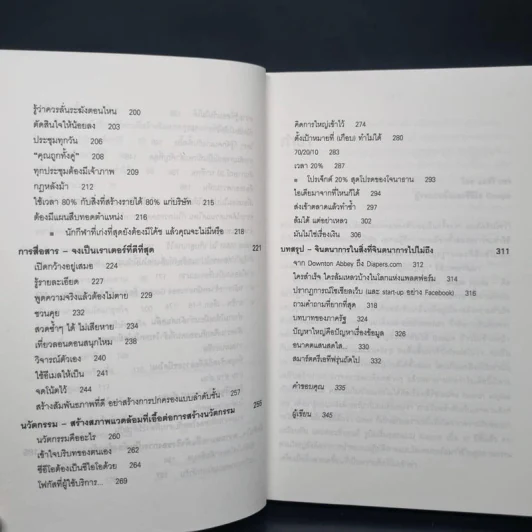 รู้ว่าควรลั่นระฆังตอนไหน 200
ตัดสินใจให้น้อยลง 203
ประชุมทุกวัน 206
"คุณถูกทั้งคู่" 208
ทุกประชุมต้องมีเจ้าภาพ 209
กฎหลังม้า 212
ใช้เวลา 80% กับสิ่งที่สร้างรายได้ 80% แก่บริษัท 215
ต้องมีแผนสืบทอดตำแหน่ง 216
นักกีฬาที่เก่งที่สุดยังต้องมีโค้ช แล้วคุณจะไม่มีหรือ 218
การสื่อสาร – จงเป็นเราเตอร์ที่ดีที่สุด 221
เปิดกว้างอยู่เสมอ 224
รู้รายละเอียด 227
พูดความจริงแล้วต้องไม่ตาย 229
ชวนคุย 232
สวดซ้ำๆ ได้ ไม่เสียหาย 234
เที่ยวลอนดอนสนุกไหม 238
วิจารณ์ตัวเอง 240
ใช้อีเมลให้เป็น 241
จดโน้ตไว้ 244
สร้างสัมพันธภาพที่ดี อย่าสร้างการปกครองแบบลำดับชั้น 257
นวัตกรรม – สร้างสภาพแวดล้อมที่เอื้อต่อการสร้างนวัตกรรม 255
นวัตกรรมคืออะไร 260
เข้าใจบริบทของตนเอง 262
ซีอีโอต้องเป็นซีไอโอด้วย 264
โฟกัสที่ผู้ใช้บริการ... 269
คิดการใหญ่เข้าไว้ 274
ตั้งเป้าหมายที่ (เกือบ) ทำไม่ได้ 280
70/20/10 283
เวลา 20% 287
โปรเจ็กต์ 20% สุดโปรดของโจนาธาน 293
ไอเดียมาจากที่ไหนก็ได้ 294
ส่งเข้าตลาดแล้วทำซ้ำ 297
ล้มได้ แต่อย่าเหลว 302
มันไม่ใช่เรื่องเงิน 307
บทสรุป – จินตนาการในสิ่งที่จินตนาการไปไม่ถึง 311
จาก Downton Abbey ถึง Diapers.com 312
ใครสำเร็จ ใครล้มเหลวบ้างในโลกแห่งแพลตฟอร์ม 314
ปรากฏการณ์โซเชียลเว็บ (และ start-up อย่าง Facebook) 316
ถามคำถามที่ยากที่สุด 318
บทบาทของภาครัฐ 324
ปัญหาใหญ่คือปัญหาเรื่องข้อมูล 326
อนาคตแสนสดใส... 330
สมาร์ตครีเอทีฟรุ่นถัดไป 332
คำขอบคุณ 335
ผู้เขียน 345